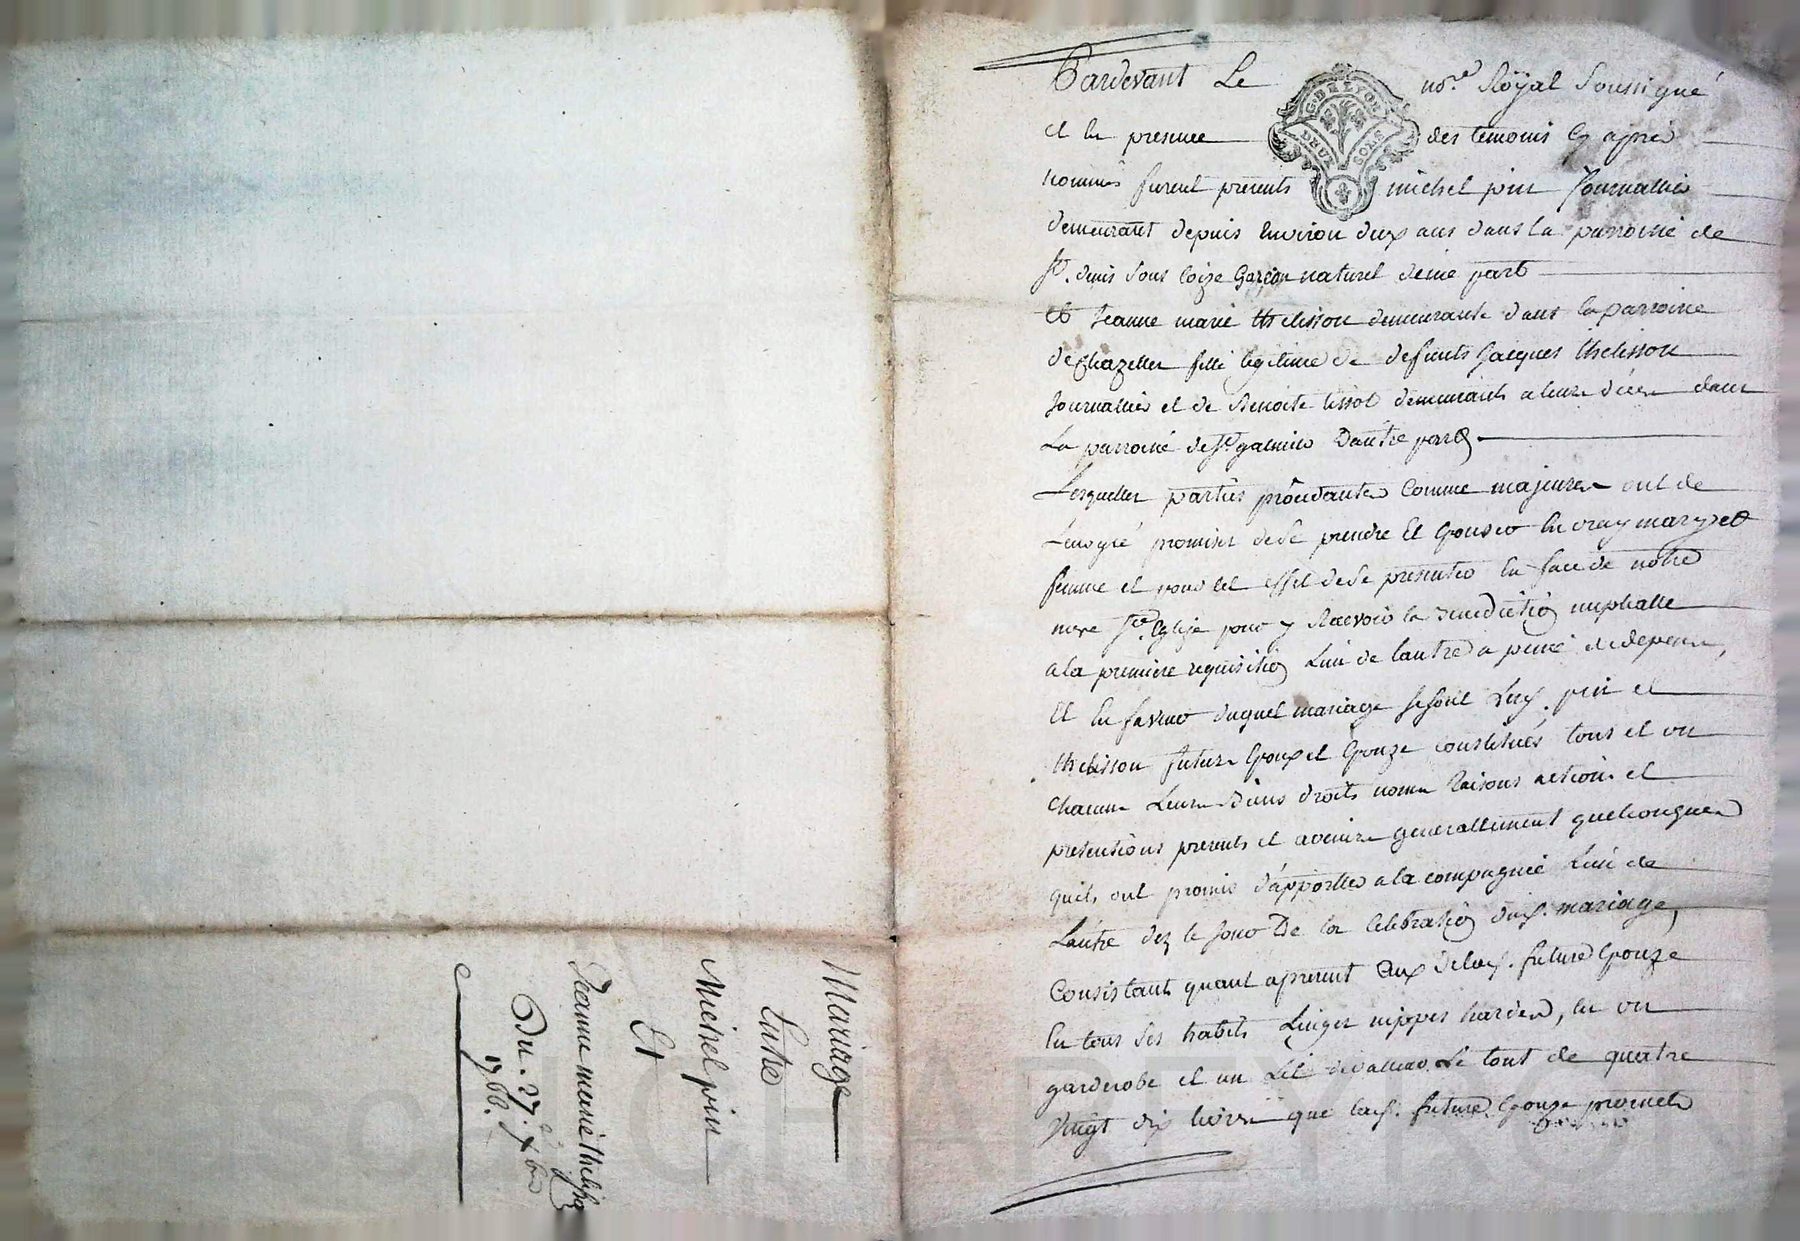 Pardevant Le no.re Royal soussigné
G. DE LYON
DEUX SOLS
et en presence des temoins cy apres
nommés furent presents michel pin Journallier
demeurant depuis Environ deux ans dans la parroisse de
St. denis sous Coize garçon naturel d'une part
et Jeanne marie thelisson demeurante dans la parroisse
de Chazelles fille legitime de defunts Jacques thelisson
Journallier et de Benoite tissot demeurants a leurs déces dans
La parroisse de St galmier D'autre part
Lesquelles parties procedantes Comme majeures ont de
Leur gré promises de se prendre Et Epouser En vray mary et
femme et pour cet effet de se presenter En face de notre
mere Ste Eglise pour y Recevoir la Benediction nuptialle
a la premiere requisition L'un de l'autre a peine de depens,
Et En faveur duquel mariage se sont Lesd. pin et
thelisson futurs Epoux et Epouze constitués tous et un
chacuns Leurs Biens droits noms Raisons actions et
pretentions presents et avenirs generallement quelconques
quils ont promis d'apporter a la compagnie L'un de
L'autre dez le jour De la Celebration dud. mariage,
Consistants quant apresent Ceux de lad. future Epouze
En tous ses habits Linges nippes hardes, En un
garderobe et un Lit de valleur Le tout de quatre
Vingt dix livres que lad. future Epouze promet
Mariage
Entre
Michel pin
Et
Jeanne marie thelisson
Du. 27. xbre
1760.